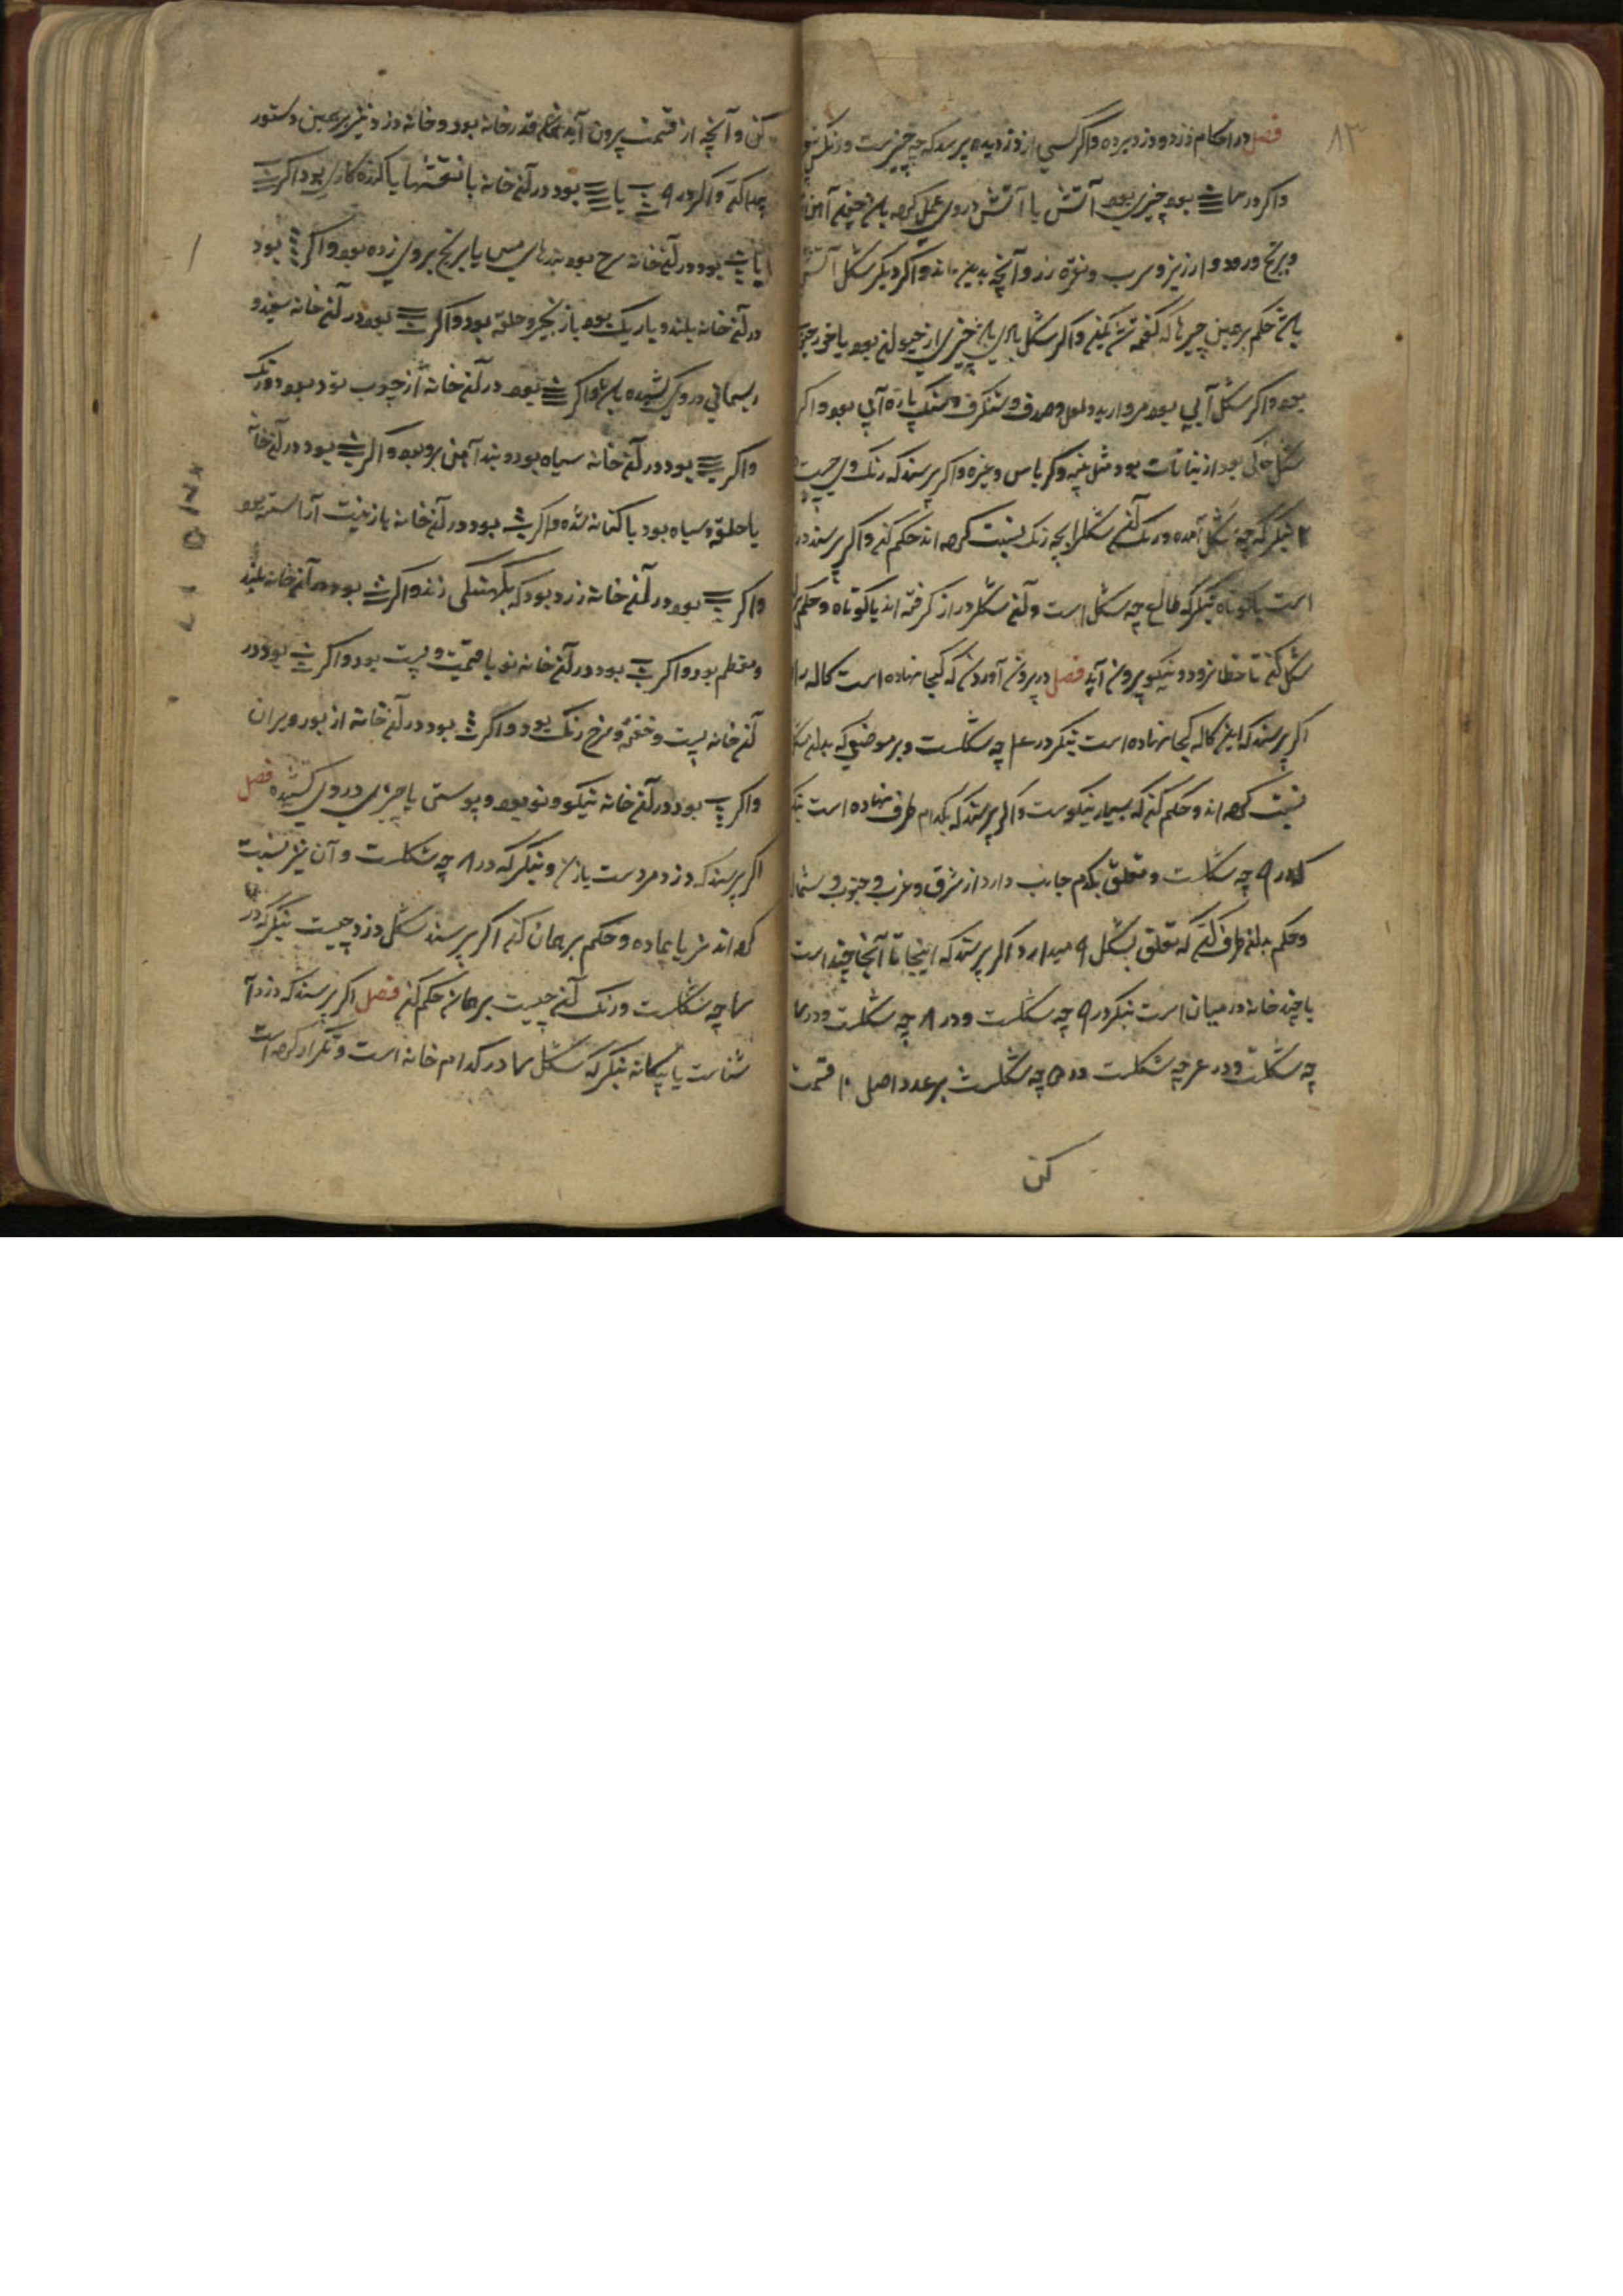 ۸۳
فصل در احکام دزد و دزد برده و اگر کسی از دزدیده پرسد که چه چیزست و رنکش
و اکر در بود چیزی بود آتش یا آتش در وی عمل کرده باشد چنچه آهن
و برنج و ارزیز و سرب و نقره زر و آنچه بدین ماند و اکر دیکر شکل آتشی
باشد حکم بر همین چیزها که گفته شد کنی و اکر شکل بادی باشد چیزی از حیوان بود یا
بود و اکر شکل آبی بود مروارید و لعل و صدف و شنکرف و سنک پاره آبی بود و اکر
شکل خاکی بود از نباتات بود مثل پنبه و کرباس و غیره و اکر پرسند که رنک وی چیست
بنکر که چه شکل آمده و رنک آن شکل را بچه رنک نسبت کرده اند حکم کن و اکر پرسند در
است یا کوتاه بنکر که طالع چه شکل است و آن شکل دراز کرفته اند یا کوتاه و حکم
شکل کن تا خطا نرود و نیکو برون آید فصل در برون آوردن که کجا نهاده است کاله را
اکر پرسند که این کاله کجا نهاده است بنکر در ۴ چه شکلست و بر موضعی که بدان
نسبت کرده اند و حکم کن که بسیار نیکوست و اکر پرسند که بکدام طرف نهاده است
که در ۹ چه شکلست و تعلق بکدام جانب دارد از شرق و غرب و جنوب و شمال
و حکم بدان طرف کن که تعلق بشکل ۹ میدارد و اکر پرسند که اینجا تا آنجا چند است
یا چند خانه در میان است بنکر در ۹ چه شکلست و در ۸ چه شکلست و در
چه شکلست و در چه شکلست در ۵ چه شکلست بر عدد اصل ۱۰ قسمت
کن
کن و آنچه از قسمت برون آید قدر خانه بود و خانه دزد نیز بر همین دستور
پیدا کن و اکر در ۹ یا بود در آن خانه با نقشها یا بود و اکر
یا بود در آن خانه سرخ بود بندهای مس یا برنج بر وی زده بود و اکر بود
در آن خانه بلند و باریک بود یا زنجیر و حلقه بود و اکر بود در آن خانه سفید و
ریسمانی در وی کشیده باشد و اکر بود در آن خانه از چوب تود بود دو رنک
و اکر بود در آن خانه سیاه بود و بند آهن برو بود و اکر بود در آن خانه
با حلقه و سیاه بود یا کتانه شده و اکر بود در آن خانه با زینت آراسته بود
و اکر بود در آن خانه زرد بود که زند و اکر بود در آن خانه بلند
و معظم بود و اکر بود در آن خانه نو با قیمت و پست بود و اکر بود در
آن خانه پست و خفته و سرخ رنک بود و اکر بود در آن خانه از بور ویران
و اکر بود در آن خانه نیکو و نو بود و پوستی یا چیزی در وی کشیده فصل
اکر پرسند که دزد مردست یا زن و بنکر که در ۸ چه شکلست و آن نیز نسبت
کرده اند نر یا ماده و حکم بر همان کن اکر پرسند شکل دزد چیست بنکر که در
چه شکلست و رنک آن چیست بر همان حکم کن فصل اکر پرسند که دزد آ
شناست یا بیکانه بنکر که شکل در کدام خانه است و تکرار کرده است